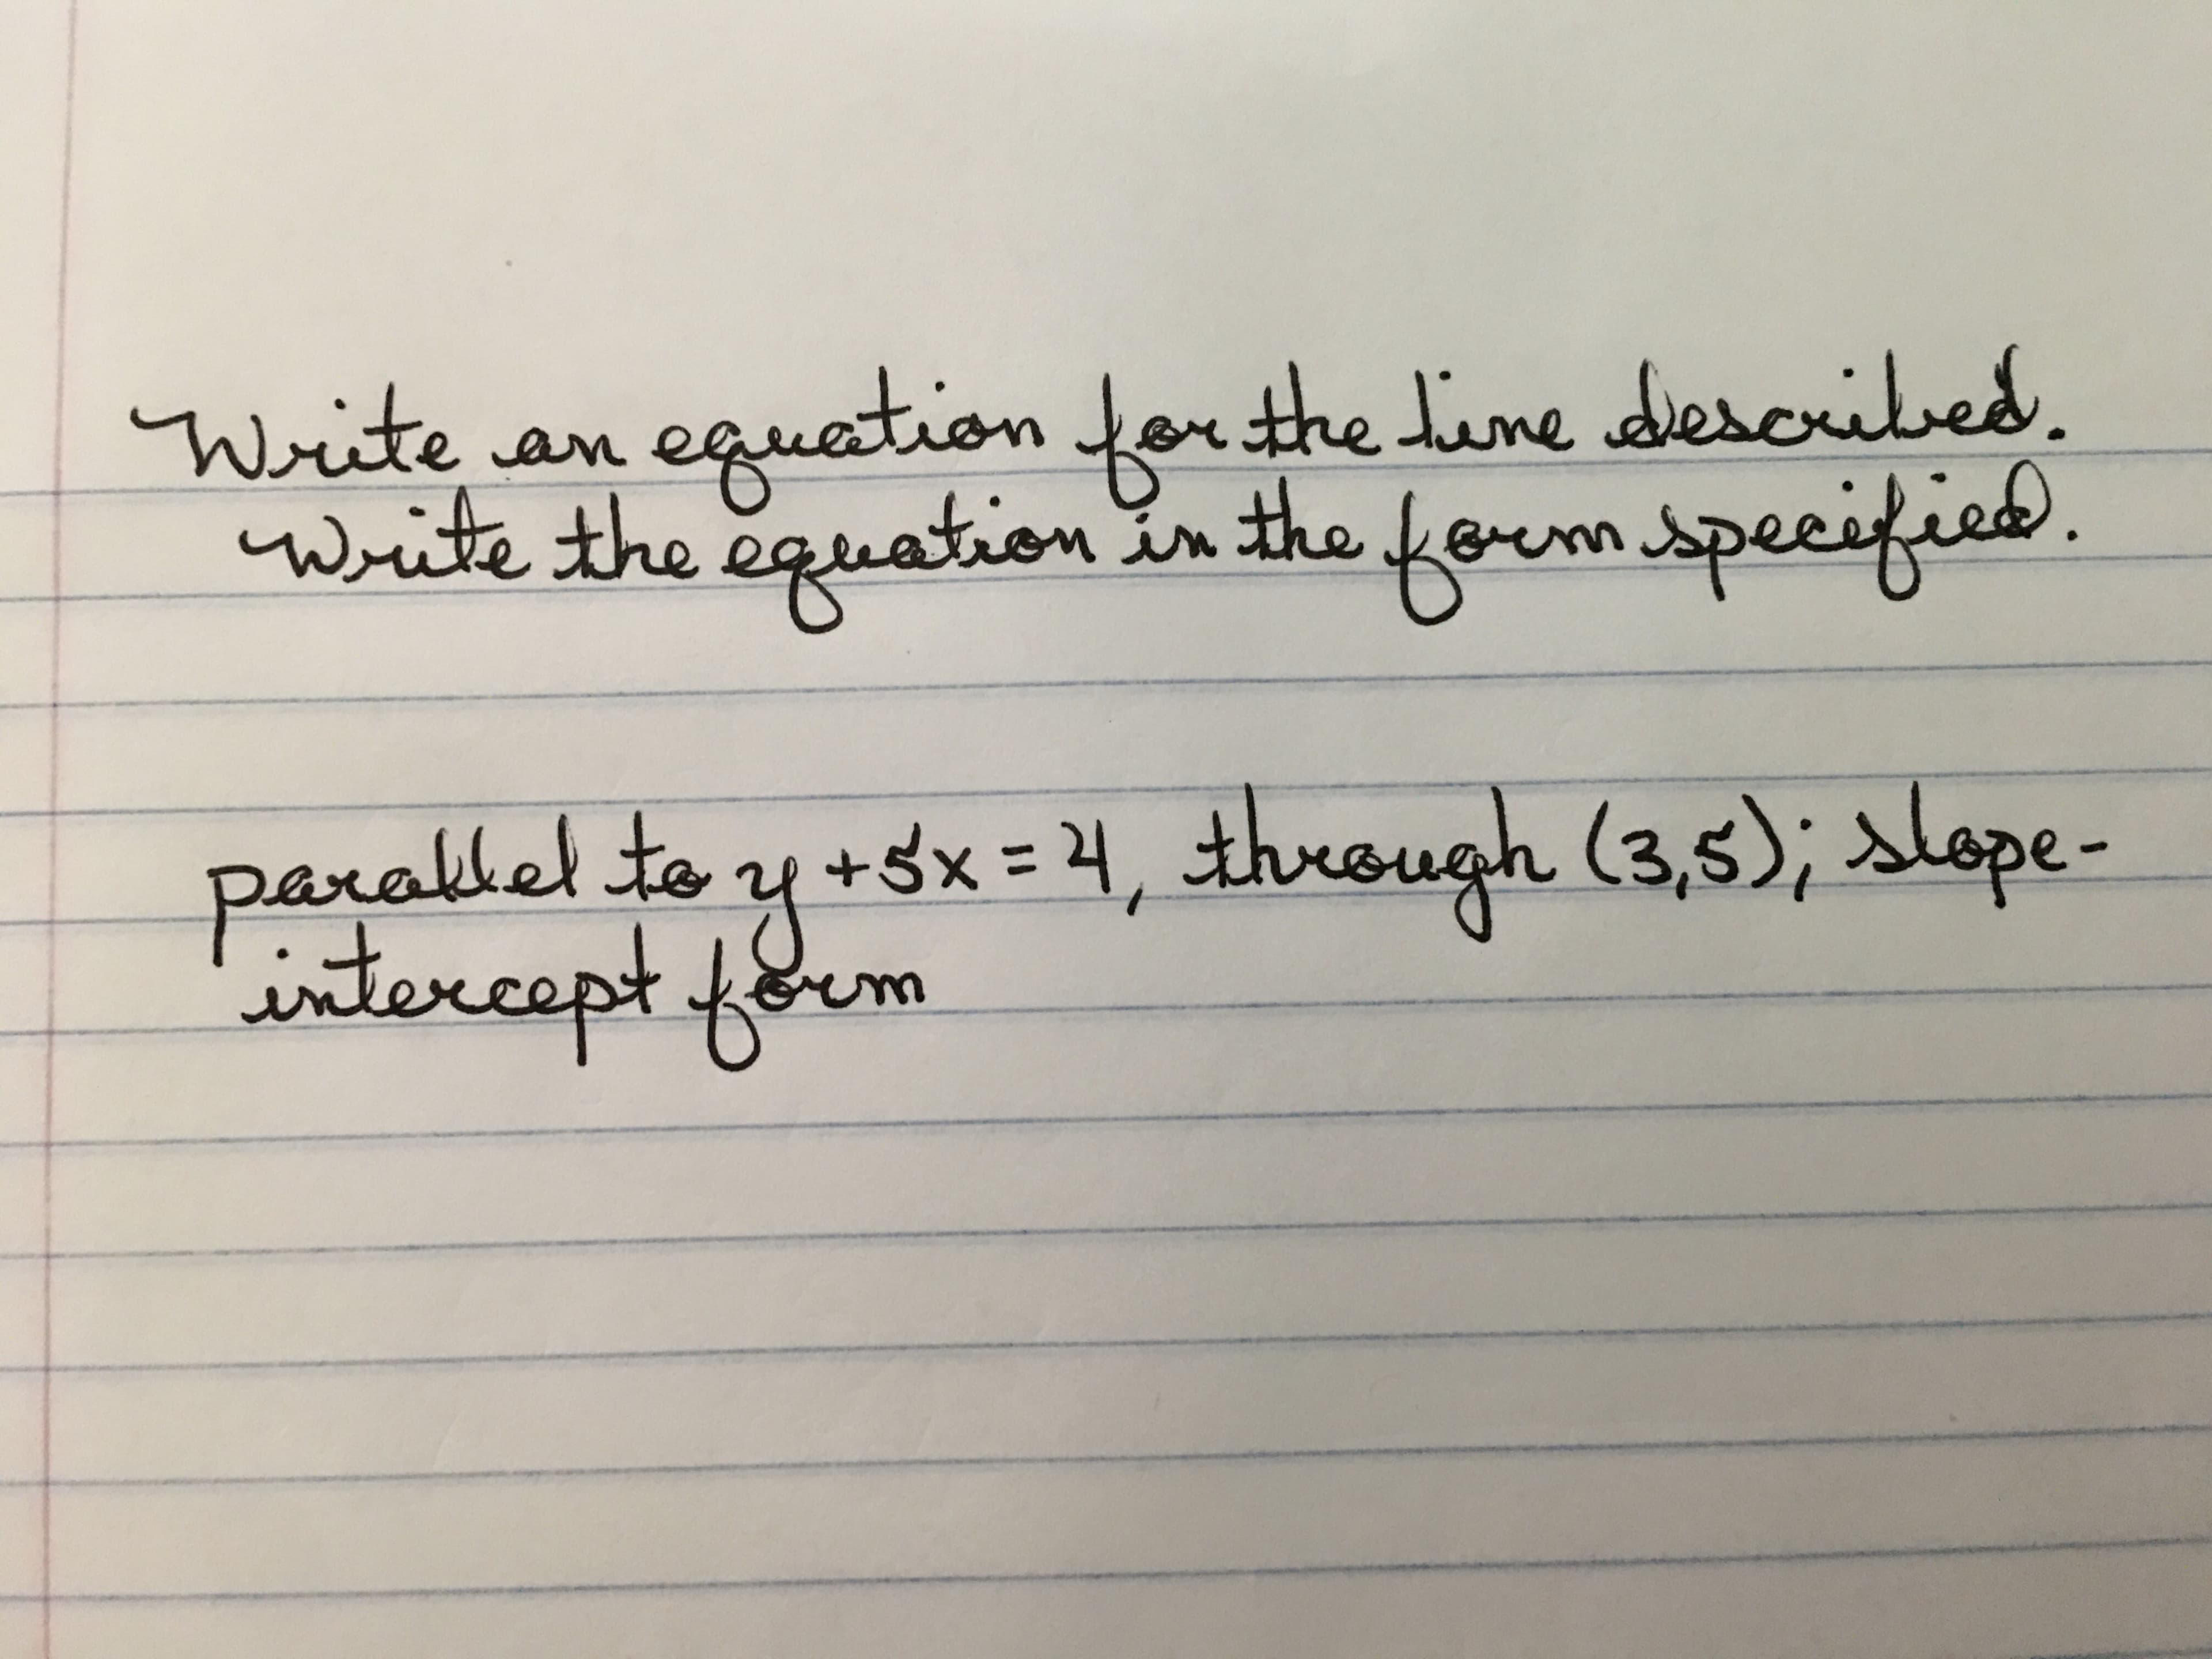 Write an equation for the line described.
Write the equation in the form specified.
parallel to y + 5x = 4, through (3,5); slope-
intercept form